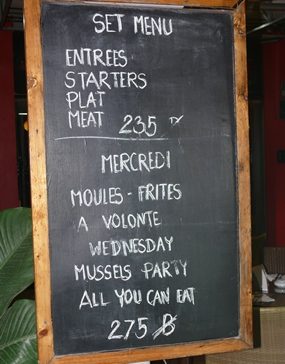 SET MENU
ENTREES
STARTERS
PLAT
MEAT 235
MERCREDI
MOULES - FRITES
A VOLONTE
WEDNESDAY
MUSSELS PARTY
ALL YOU CAN EAT
275 B